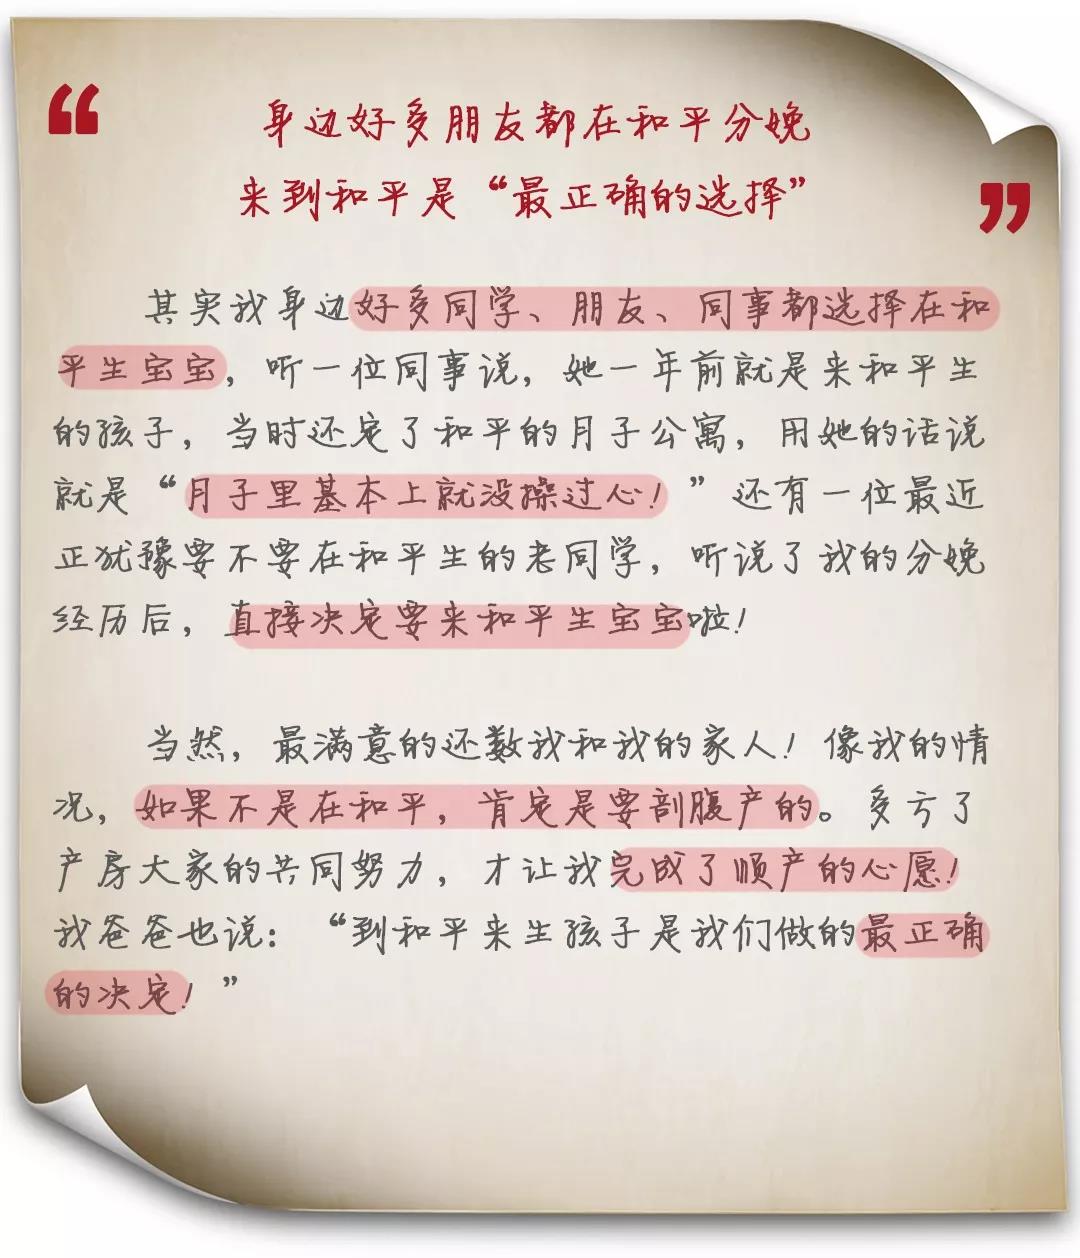 “
身边好多朋友都在和平分娩
来到和平是“最正确的选择”
”
其实我身边好多同学、朋友、同事都选择在和
平生宝宝，听一位同事说，她一年前就是来和平生
的孩子，当时还定了和平的月子公寓，用她的话说
就是“月子里基本上就没操过心！”还有一位最近
正犹豫要不要在和平生的老同学，听说了我的分娩
经历后，直接决定要来和平生宝宝啦！
当然，最满意的还数我和我的家人！像我的情
况，如果不是在和平，肯定是要剖腹产的。多亏了
产房大家的共同努力，才让我完成了顺产的心愿！
我爸爸也说：“到和平来生孩子是我们做的最正确
的决定！”